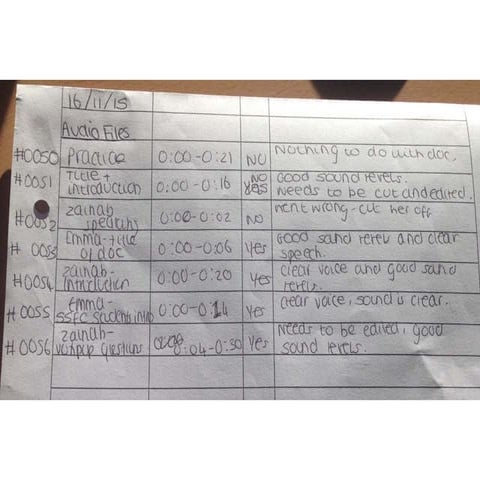 16/11/15
Audio Files
#0050 Practice 0:00-0:21 NO Nothing to do with doc.
#0051 Title + 0:00-0:16 NO Good sound levels.
introduction YES Needs to be cut and edited.
#0052 Zainab 0:00-0:02 NO Went wrong-cut her off
speaking
#0053 Emma-title 0:00-0:06 Yes Good sand levels and clear
of doc speech.
#0054 Zainab- 0:00-0:20 Yes clear voice and good sand
introduction levels.
#0055 Emma- 0:00-0:14 Yes clear voice, sound is clear.
SSFC student info
#0056 Zainab- 0:04-0:30 Yes Needs to be edited, good
voxpop questions sound levels.